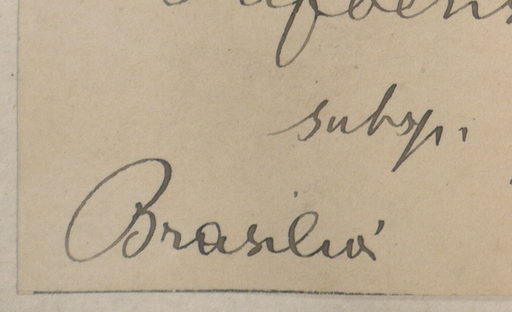 subsp.
Brasilia